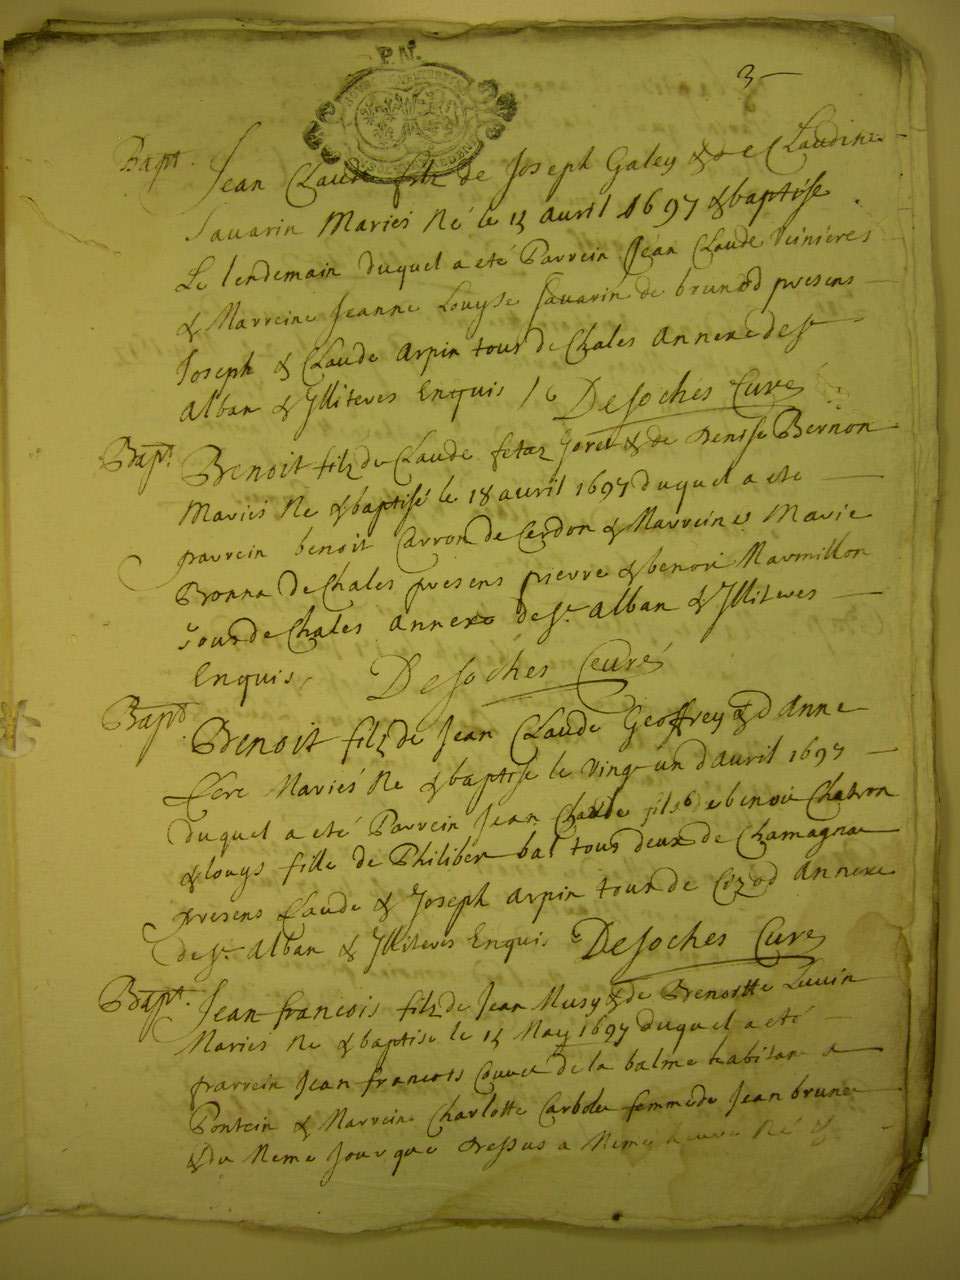 P. N.
3
Bapt. Jean Claude filz de Joseph Galey & de Claudine
Savarin Mariés Né le 13 avril 1697 & baptise
Le lendemain duquel a eté Parrein Jean Claude
& Marreine Jeanne Louyse Savarin de brunod presens
Joseph & Claude Arpin tous de Chales Annexe de St
Alban & Illiteres Enquis Desoches Curé
Bapt. Benoit filz de Claude fetaz & de Denise Bernon
Mariés Né & baptisé le 18 avril 1697 duquel a eté
parrein benoit Carron de Cerdon & Marreine Marie
Bonna de Chales presens pierre & benoit Marmillon
Tous de Chales Annexe de St. Alban & Illiteres
Enquis. Desoches Curé
Bapt. Benoit filz de Jean Claude Geoffrey & d Anne
Mariés Né & baptise le vingt un d avril 1697
duquel a eté Parrein Jean Claude fils de benoit Chatron
& louys fille de Philiber bal tous deux de Chamagnat
presens Claude & Joseph Arpin tous de Cizod Annexe
de St. Alban & Illiteres Enquis Desoches Curé
Bapt. Jean francois filz de Jean Musy & de Benoitte Luvin
Mariés Né & baptise le 15 May 1697 duquel a eté
parrein Jean francois de la balme habitant a
Pontein & Marreine Charlotte femme de Jean brunet
& Du Meme Jour que dessus a Meme heure Né &